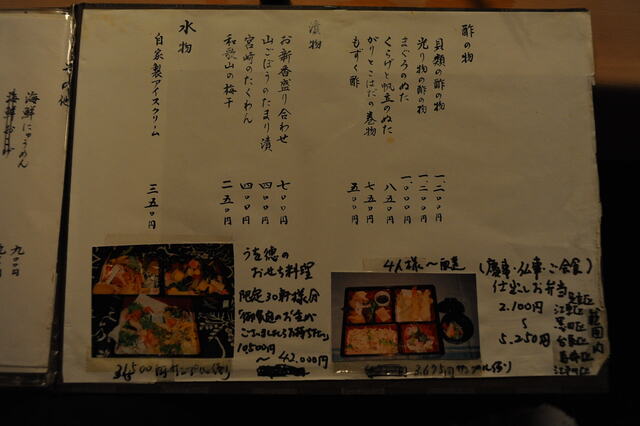 酢の物
貝類の酢の物 一、二〇〇円
光り物の酢の物 一、二〇〇円
まぐろのぬた 一、〇〇〇円
くらげと帆立のぬた 八五〇円
がりとこはだの巻物 七五〇円
もずく酢 五〇〇円
漬物
お新香盛り合わせ 七〇〇円
山ごぼうのたまり漬 四〇〇円
宮崎のたくわん 四〇〇円
和歌山の梅干 二五〇円
水物
自家製アイスクリーム 三五〇円
その他
海鮮にゅうめん 九〇〇円
おせち料理
限定30軒様分
10,500円
〜42,000円
36,500円サンプル
4人様〜配達
3,675円サンプル
(慶事・仏事・ご会食)
仕出しお弁当
2,100円
〜
5,250円
範囲内